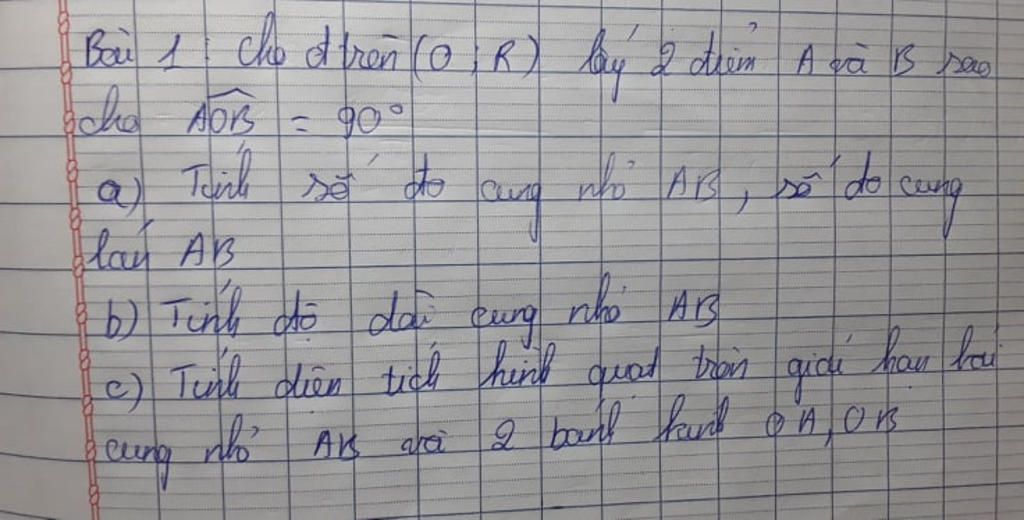 Bài 1: Cho đ tròn (O; R) lấy 2 điểm A và B sao
cho AOB = 90°
a) Tính số đo cung nhỏ AB, số đo cung
lớn AB
b) Tính độ dài cung nhỏ AB
c) Tính diện tích hình quạt tròn giới hạn bởi
cung nhỏ AB và 2 bánh kính OA, OB